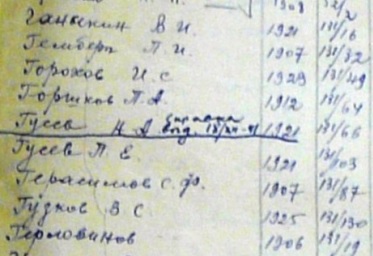 1903 132/2
Ганькин В И. 1921 131/16
Гемберг П. И. 1907 131/32
Горохов И. С 1929 131/49
Горшков П. А. 1912 131/64
Гусев Н А 1921 131/66
Гусев П Е. 1921 03
Герасимов С. Ф. 1907 131/87
Гузков В С 1925 131/130
Герловинов 1906 131/19